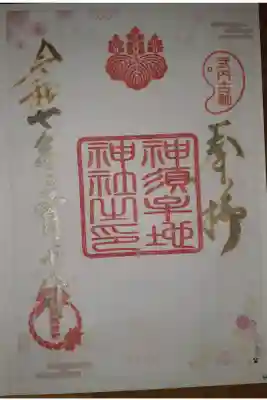 式内古社
奉拝
神須牟地
神社之印
令和七年三月